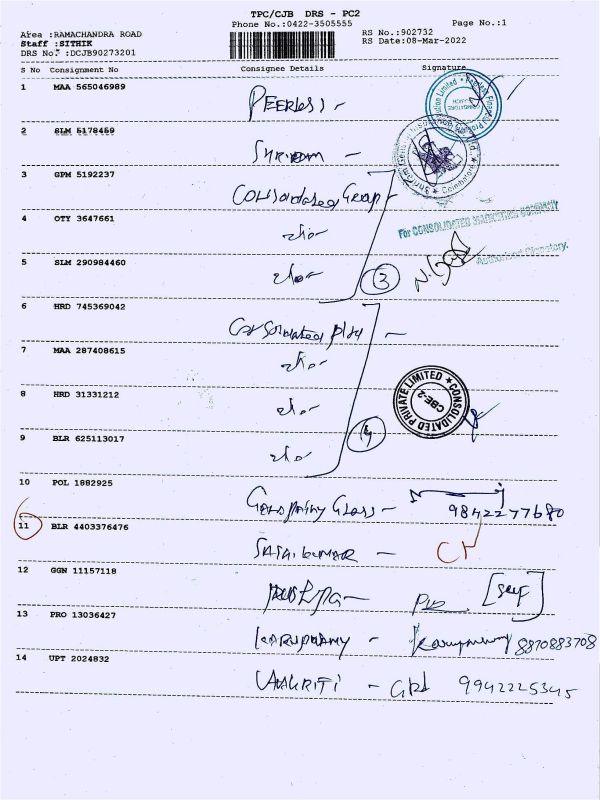 TPC/CJB DRS - PC2
Phone No.:0422-3505555
Page No.:1
Area :RAMACHANDRA ROAD
Staff :SITHIK
DRS No. :DCJB90273201
RS No.:902732
RS Date:08-Mar-2022
S No Consignment No Consignee Details Signature
1 MAA 565046989 PEERLESS -
2 SLM 5178459 SHRIRAM -
3 GPM 5192237 Consolidated Group
4 OTY 3647661
For CONSOLIDATED MARKETING COMPANY
Authorised Signatory.
5 SLM 290984460 3
6 HRD 745369042 Consolidated -
7 MAA 287408615
8 HRD 31331212
CONSOLIDATED PRIVATE LIMITED
CBE-2
9 BLR 625113017 4
10 POL 1882925 Glass - 9842277680
11 BLR 4403376476 SASIKUMAR -
12 GGN 11157118 [Self]
13 PRO 13036427 KARUPPAMY - 8870883708
14 UPT 2024832 - 9942225345